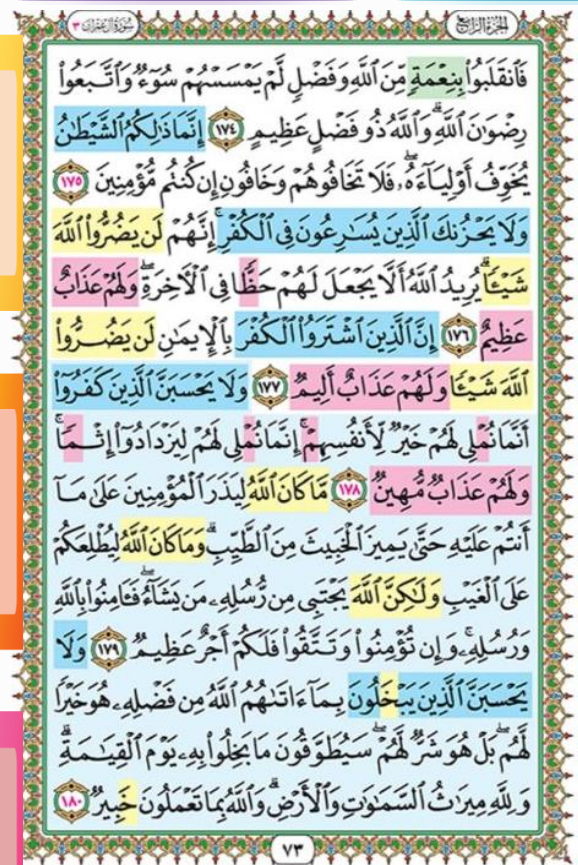 الجزء الرابع
سورة آل عمران ٣
فَٱنقَلَبُواْ بِنِعْمَةٍ مِّنَ ٱللَّهِ وَفَضْلٍ لَّمْ يَمْسَسْهُمْ سُوٓءٌ وَٱتَّبَعُواْ
رِضْوَٰنَ ٱللَّهِ ۗ وَٱللَّهُ ذُو فَضْلٍ عَظِيمٍ ١٧٤ إِنَّمَا ذَٰلِكُمُ ٱلشَّيْطَٰنُ
يُخَوِّفُ أَوْلِيَآءَهُۥ فَلَا تَخَافُوهُمْ وَخَافُونِ إِن كُنتُم مُّؤْمِنِينَ ١٧٥
وَلَا يَحْزُنكَ ٱلَّذِينَ يُسَٰرِعُونَ فِى ٱلْكُفْرِ ۚ إِنَّهُمْ لَن يَضُرُّواْ ٱللَّهَ
شَيْـًٔا ۗ يُرِيدُ ٱللَّهُ أَلَّا يَجْعَلَ لَهُمْ حَظًّا فِى ٱلْأَخِرَةِ ۖ وَلَهُمْ عَذَابٌ
عَظِيمٌ ١٧٦ إِنَّ ٱلَّذِينَ ٱشْتَرَوُاْ ٱلْكُفْرَ بِٱلْإِيمَٰنِ لَن يَضُرُّواْ
ٱللَّهَ شَيْـًٔا وَلَهُمْ عَذَابٌ أَلِيمٌ ١٧٧ وَلَا يَحْسَبَنَّ ٱلَّذِينَ كَفَرُوٓاْ
أَنَّمَا نُمْلِى لَهُمْ خَيْرٌ لِّأَنفُسِهِمْ ۚ إِنَّمَا نُمْلِى لَهُمْ لِيَزْدَادُوٓاْ إِثْمًا ۚ
وَلَهُمْ عَذَابٌ مُّهِينٌ ١٧٨ مَّا كَانَ ٱللَّهُ لِيَذَرَ ٱلْمُؤْمِنِينَ عَلَىٰ مَآ
أَنتُمْ عَلَيْهِ حَتَّىٰ يَمِيزَ ٱلْخَبِيثَ مِنَ ٱلطَّيِّبِ ۗ وَمَا كَانَ ٱللَّهُ لِيُطْلِعَكُمْ
عَلَى ٱلْغَيْبِ وَلَٰكِنَّ ٱللَّهَ يَجْتَبِى مِن رُّسُلِهِۦ مَن يَشَآءُ ۖ فَـَٔامِنُواْ بِٱللَّهِ
وَرُسُلِهِۦ ۚ وَإِن تُؤْمِنُواْ وَتَتَّقُواْ فَلَكُمْ أَجْرٌ عَظِيمٌ ١٧٩ وَلَا
يَحْسَبَنَّ ٱلَّذِينَ يَبْخَلُونَ بِمَآ ءَاتَىٰهُمُ ٱللَّهُ مِن فَضْلِهِۦ هُوَ خَيْرًا
لَّهُم ۖ بَلْ هُوَ شَرٌّ لَّهُمْ ۖ سَيُطَوَّقُونَ مَا بَخِلُواْ بِهِۦ يَوْمَ ٱلْقِيَٰمَةِ ۗ
وَلِلَّهِ مِيرَٰثُ ٱلسَّمَٰوَٰتِ وَٱلْأَرْضِ ۗ وَٱللَّهُ بِمَا تَعْمَلُونَ خَبِيرٌ ١٨٠
٧٣